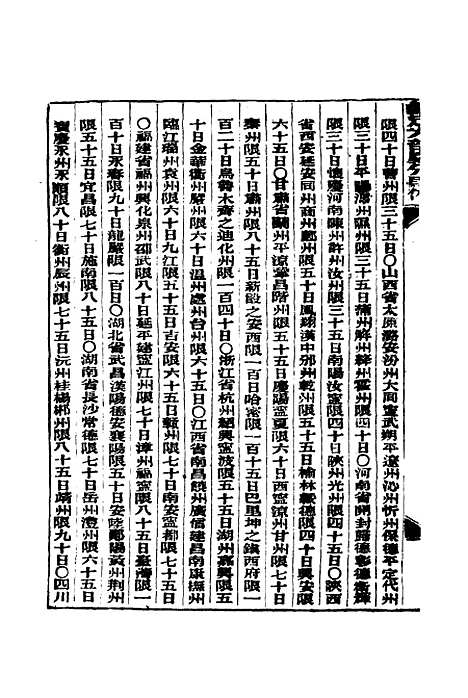 限四十日曹州限三十五日〇山西省太原潞安汾州大同寧武朔平遼州沁州忻州保德平定代州
限三十日平陽澤州隰州限三十五日蒲州解州絳州霍州限四十日〇河南省開封歸德彰德衛輝
限三十日懷慶河南陳州許州汝州限三十五日南陽汝寧限四十日陝州光州限四十五日〇陝西
省西安延安同州商州鄜州限五十日鳳翔漢中邠州乾州限五十五日榆林綏德限四十日興安限
六十五日〇甘肅省蘭州平涼鞏昌階州限五十五日慶陽寧夏限六十日西寧涼州甘州限七十日
秦州限五十日肅州限八十五日新設之安西限一百日哈密限一百十五日巴里坤之鎮西府限一
百二十日烏魯木齊之迪化州限一百四十日〇浙江省杭州紹興寧波限五十五日湖州嘉興限五
十日金華衢州嚴州限六十日溫州處州台州限六十五日〇江西省南昌饒州廣信建昌南康撫州
臨江瑞州袁州限六十日九江限五十五日吉安限六十五日贛州限七十日南安寧都限七十五日
〇福建省福州興化泉州邵武限八十日延平建寧汀州限七十日漳州福寧限八十五日臺灣限一
百十日永春限九十日龍巖限一百日〇湖北省武昌漢陽德安襄陽限五十日安陸鄖陽黃州荊州
限五十五日宜昌限七十日施南限八十五日〇湖南省長沙常德限七十日岳州澧州限六十五日
寶慶永州永順限八十日衡州辰州限七十五日沅州桂楊郴州限八十五日靖州限九十日〇四川